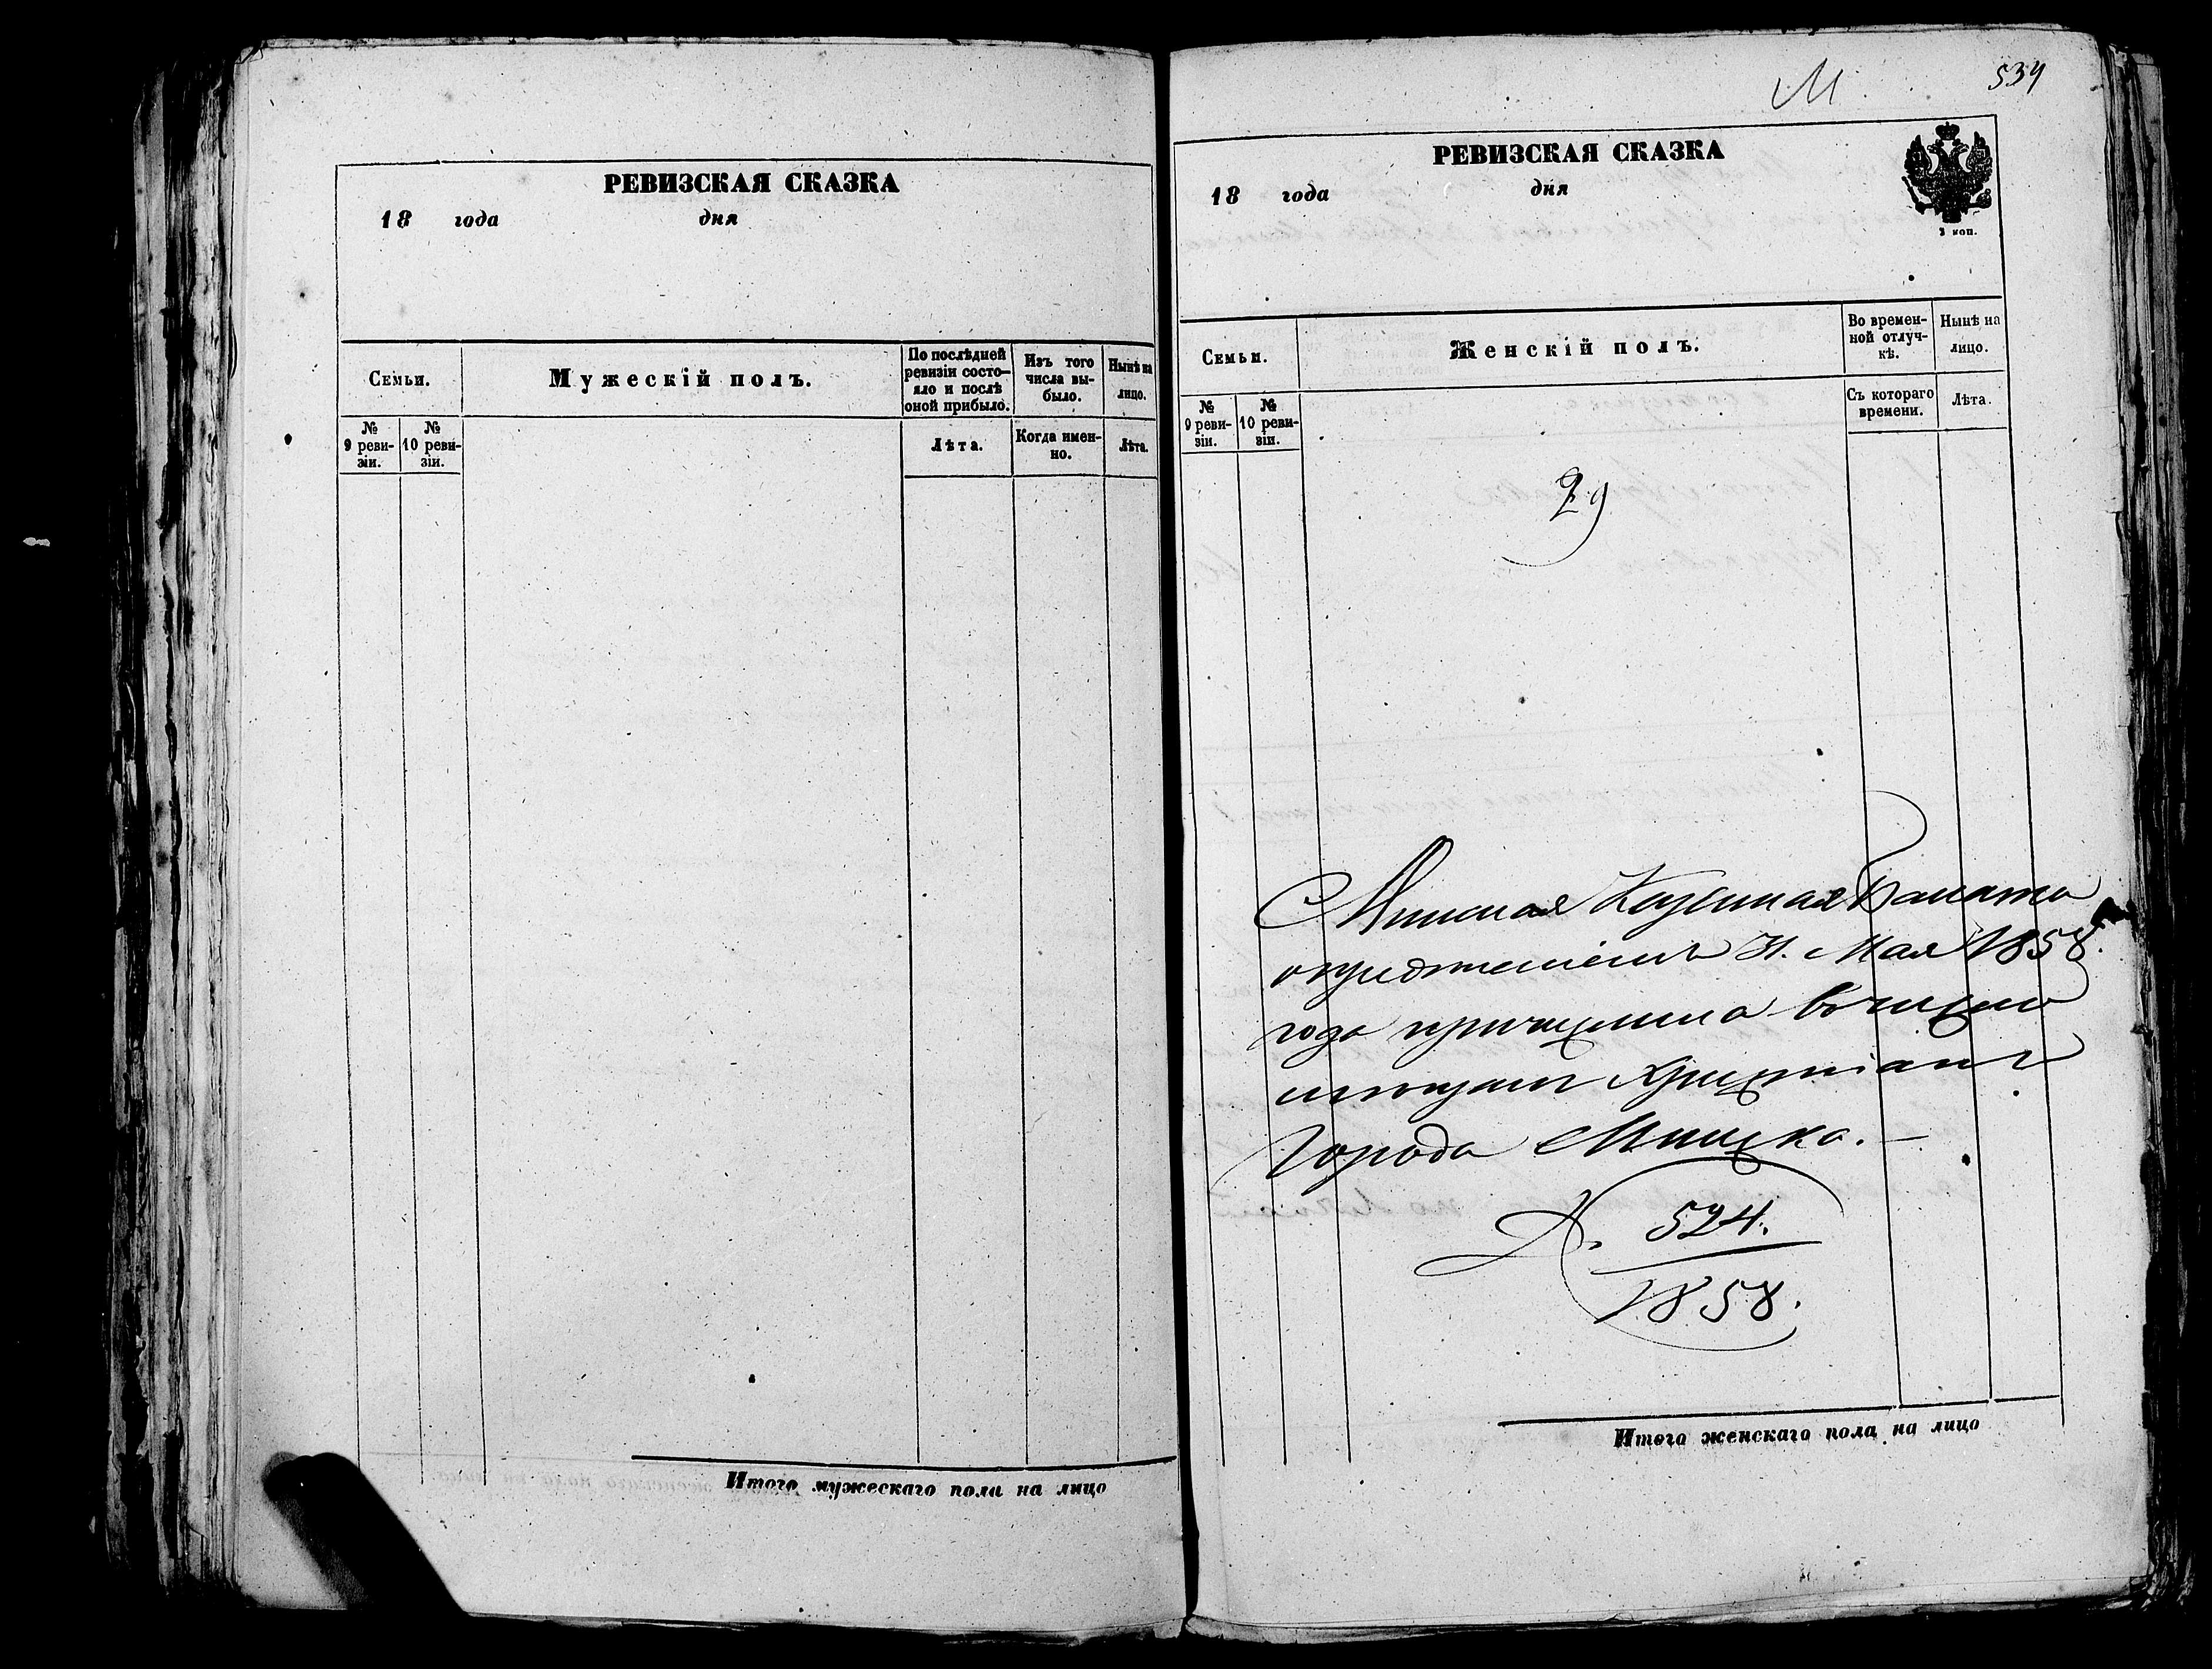 РЕВИЗСКАЯ СКАЗКА
18 года дня
Семьи.
Мужескій полъ.
По послѣдней ревизіи состо-
яло и послѣ
оной прибыло.
Изъ того
числа вы-
было.
Нынѣ на
лицо.
№
9 реви-
зіи.
№
10 реви-
зіи.
Лѣта.
Когда имен-
но.
Лѣта.
Итого мужескаго пола на лицо
М
534
РЕВИЗСКАЯ СКАЗКА
18 года дня
3 коп.
Семьи.
Женскій полъ.
Во времен-
ной отлуч-
кѣ.
Нынѣ на
лицо.
№
9 реви-
зіи.
№
10 реви-
зіи.
Съ котораго
времени.
Лѣта.
29
Минская Казенная Палата
опредѣленіемъ 31. Мая 1858.
года причислила въ число
мѣщанъ Христіанъ
Города Минска. —
Д. 524.
1858.
Итого женскаго пола на лицо